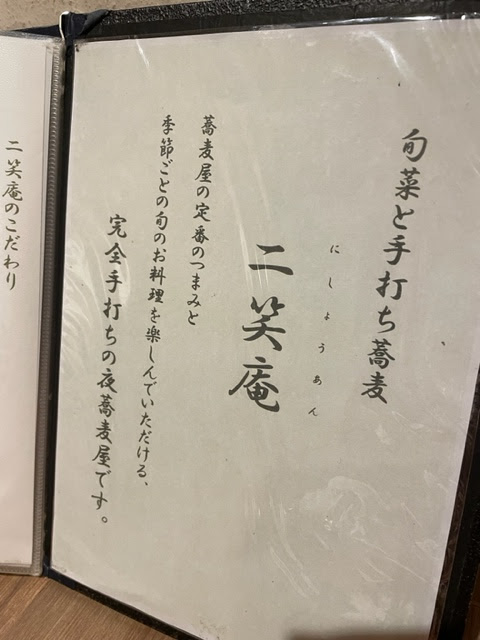 旬菜と手打ち蕎麦
にしょうあん
二笑庵
蕎麦屋の定番のつまみと
季節ごとの旬のお料理を楽しんでいただける、
完全手打ちの夜蕎麦屋です。
二笑庵のこだわり